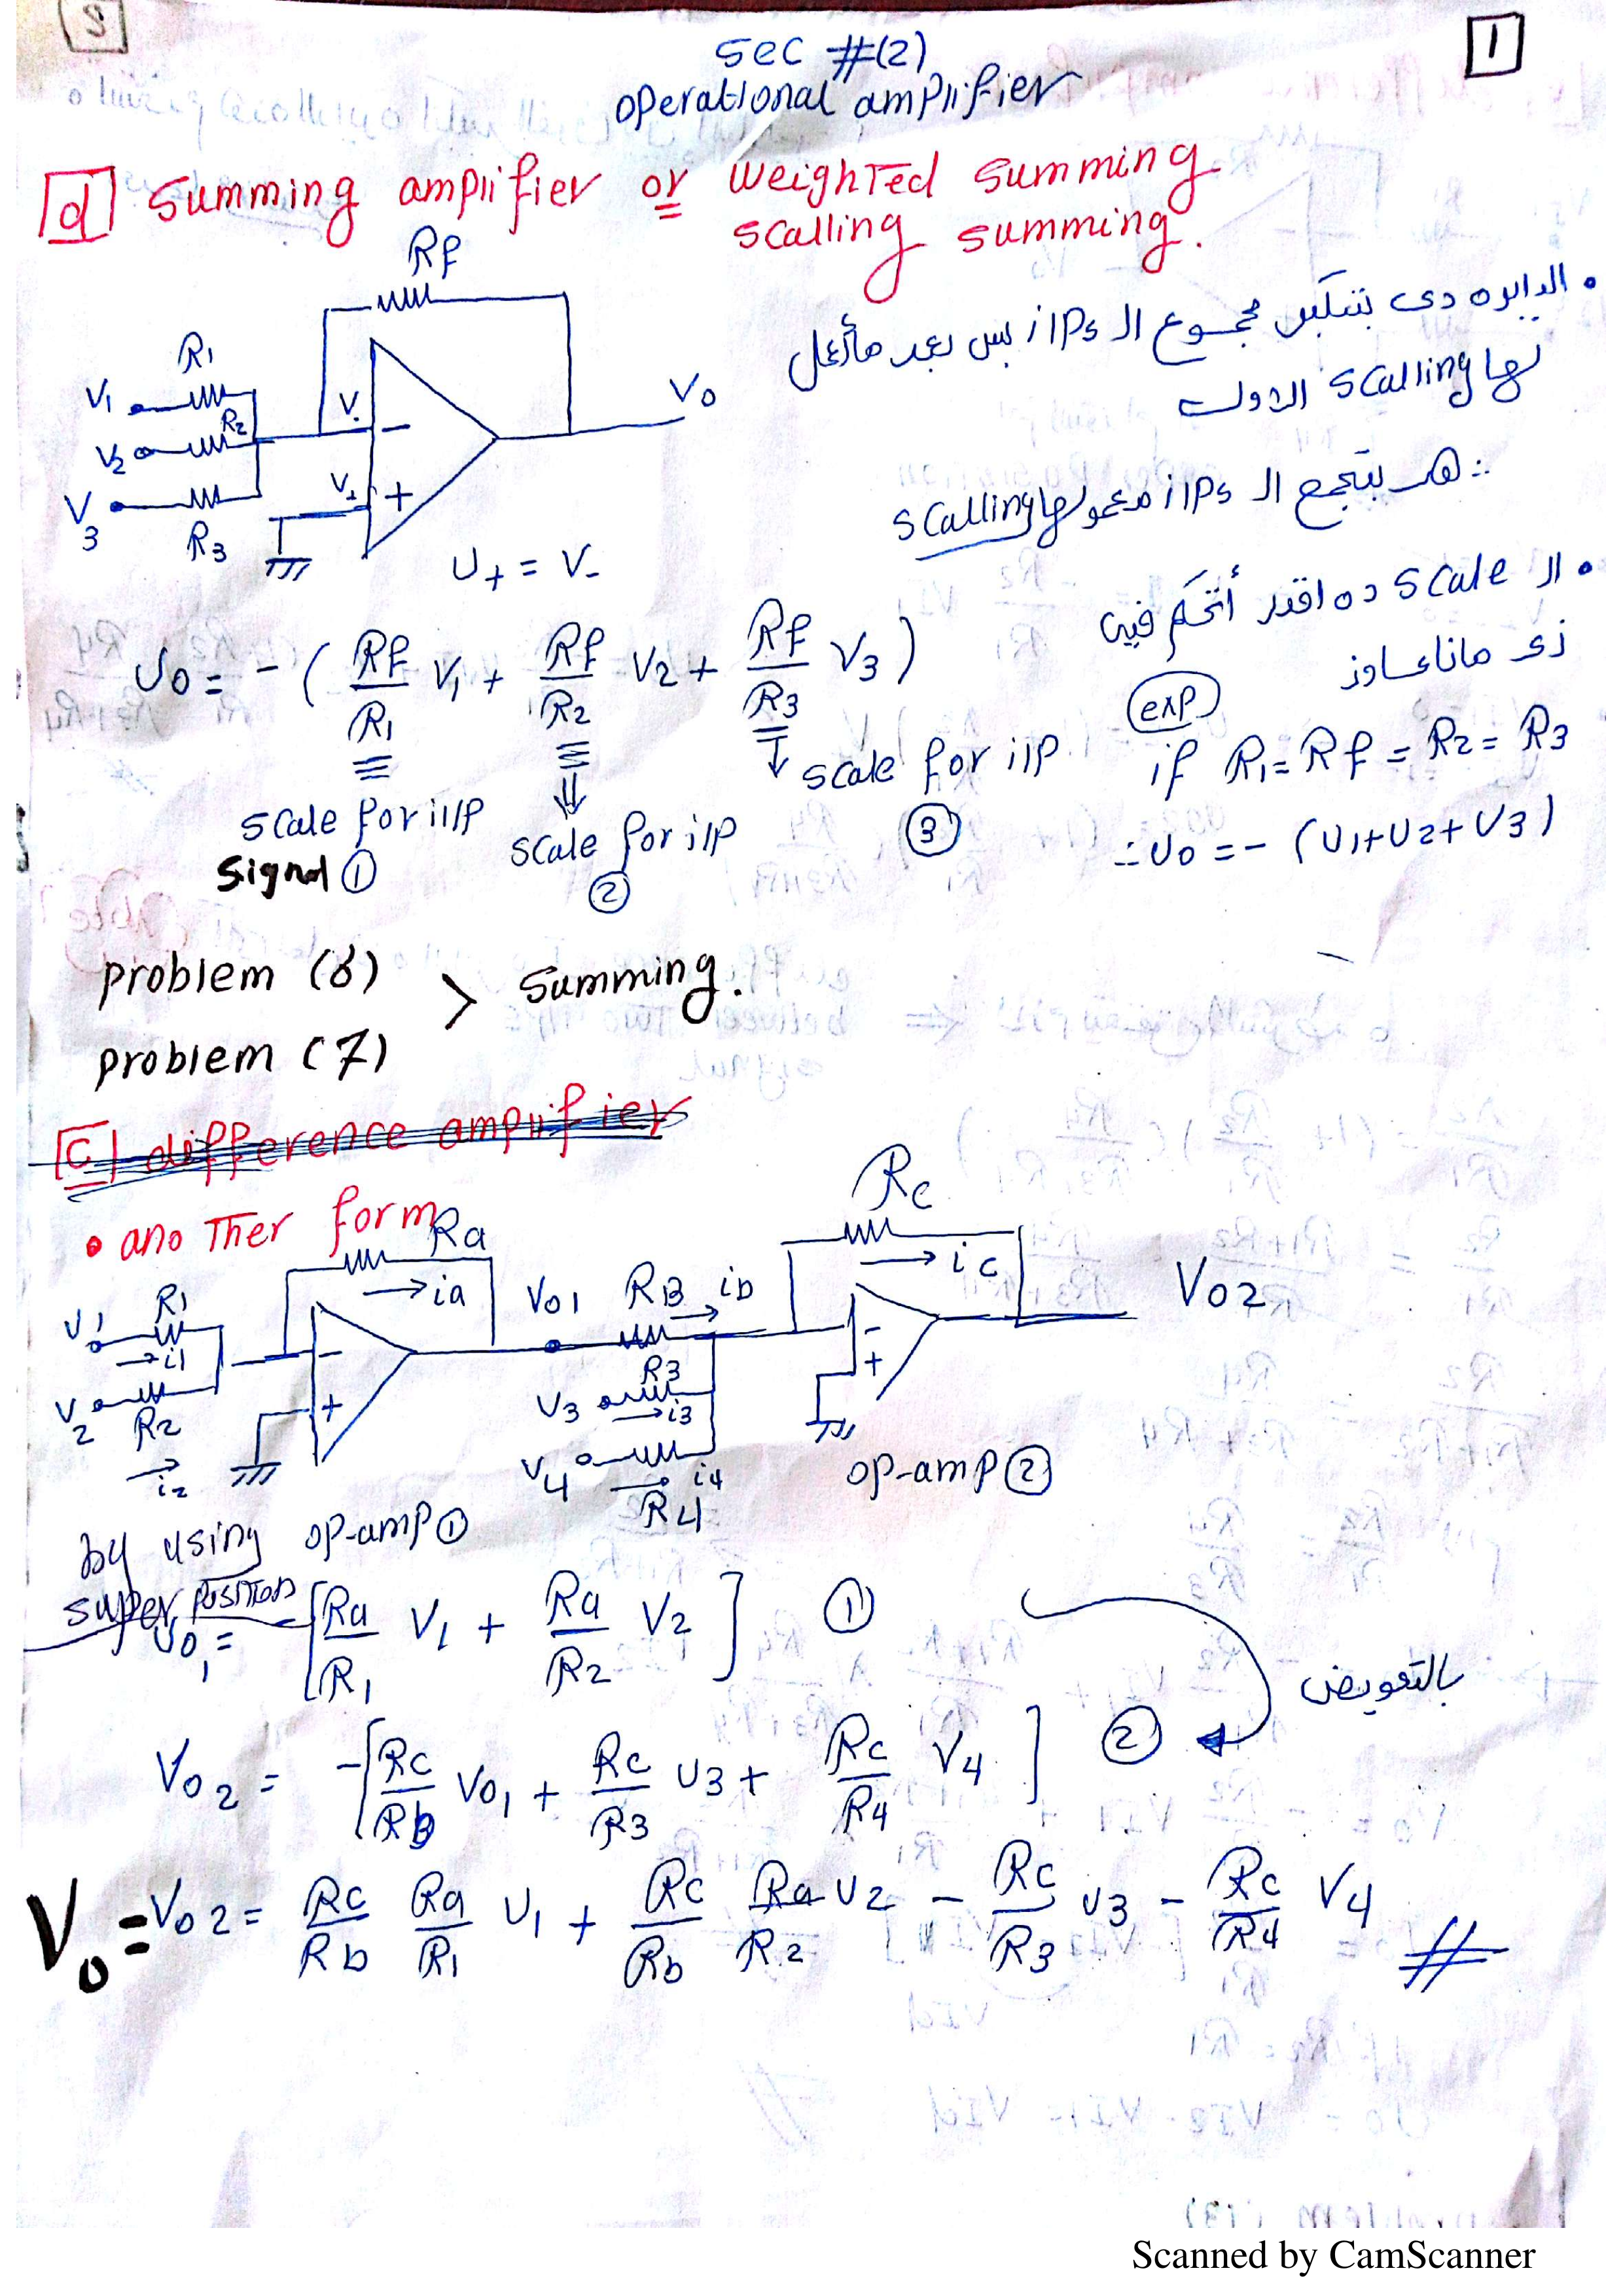 1
sec #(2)
operational amplifier
d summing amplifier or weighted summing
scalling summing.
Rf
R1
V1
R2
V2
V3
R3
V-
V+
-
+
Vo
U+ = V-
• الدايره دى بتنكبر مجموع الـ i/Ps بس بعد ماأعمل
لها scalling الاول
∴ هى بتجمع الـ i/Ps معمولها scalling
• الـ scale ده اقدر أتحكم فيه
زى مانا عاوز
Uo = - ( Rf/R1 V1 + Rf/R2 V2 + Rf/R3 V3 )
scale for i/p
signal 1
scale for i/p
2
scale for i/p
3
exp
if R1 = Rf = R2 = R3
∴ Uo = - (U1+U2+V3)
problem (6)
problem (7)
> summing.
c difference amplifier
• another form
Ra
→ ia
U1 R1
→ i1
V2 R2
→ i2
-
+
Vo1 RB ib
R3
V3 → i3
V4 → i4
R4
Rc
→ ic
-
+
Vo2
op-amp 2
by using op-amp 1
super position
Uo1 = - [ Ra/R1 V1 + Ra/R2 V2 ] 1
بالتعويض
Vo2 = - [ Rc/Rb Vo1 + Rc/R3 U3 + Rc/R4 V4 ] 2
Vo = Vo2 = Rc/Rb Ra/R1 U1 + Rc/Rb Ra/R2 U2 - Rc/R3 U3 - Rc/R4 V4 #
Scanned by CamScanner